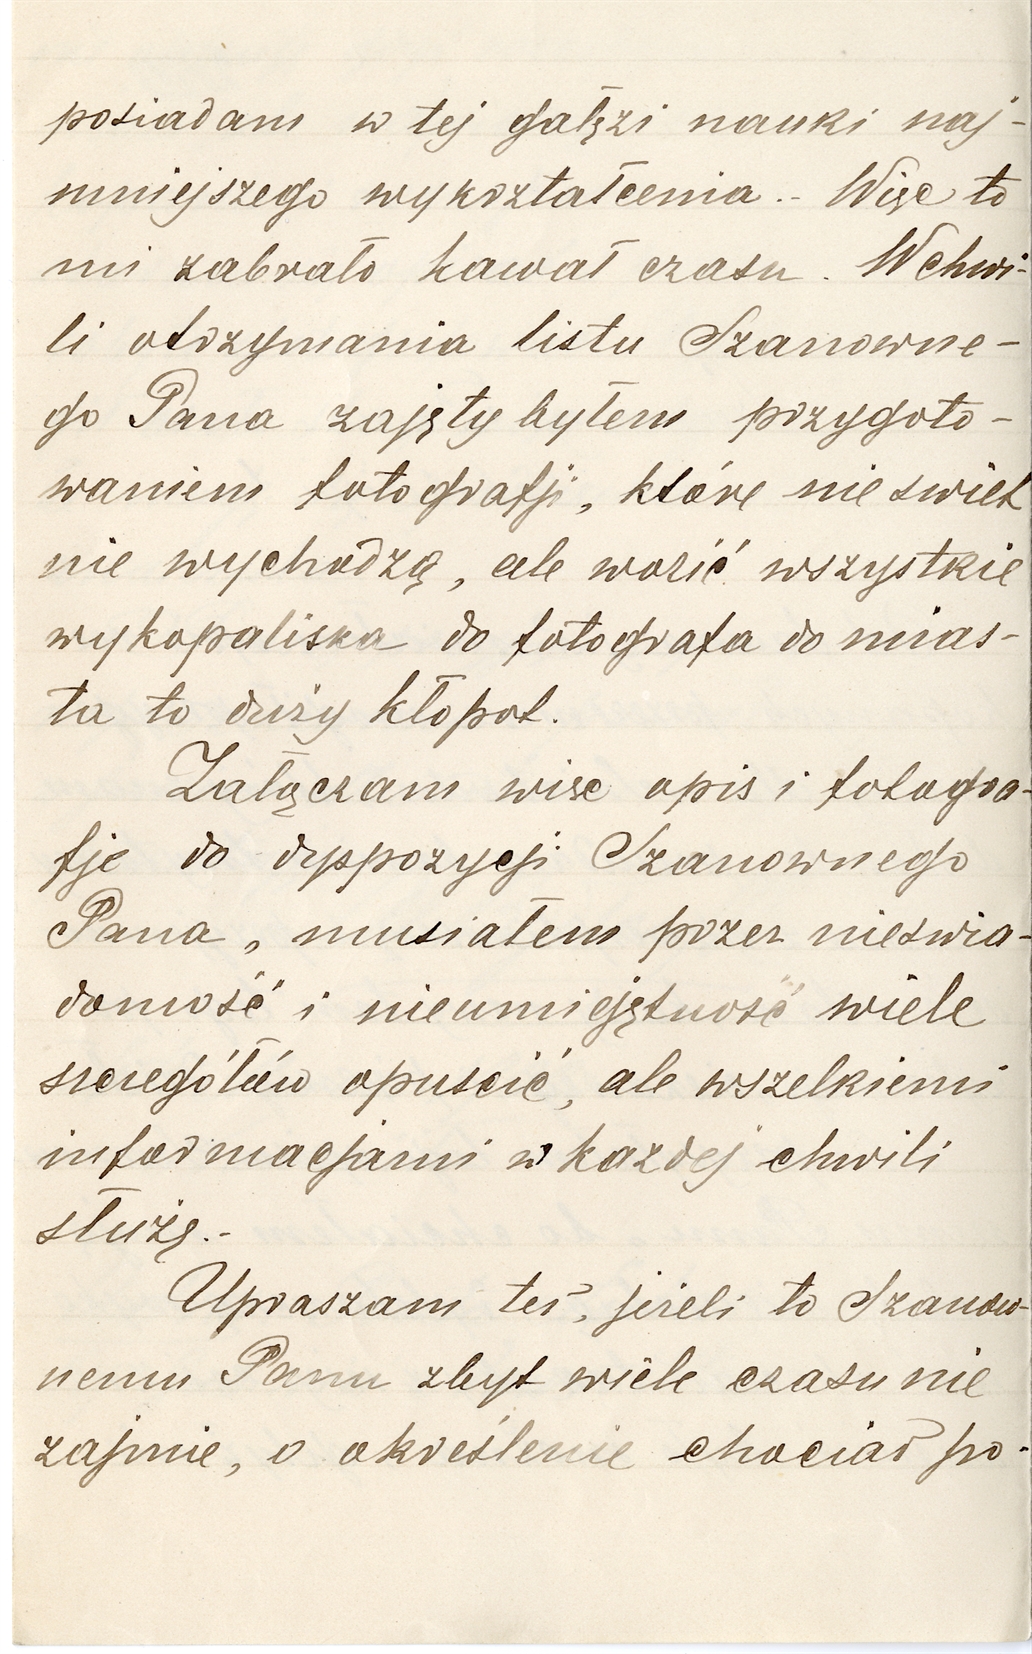 posiadam w tej gałęzi nauki naj-
mniejszego wykształcenia.- Więc to
mi zabrało kawał czasu. W chwi-
li otrzymania listu Szanowne-
go Pana zajęty byłem przygoto-
waniem fotografji, które nie swiet
nie wychodzą, ale wozić wszystkie
wykopaliska do fotografa do mias-
ta to duży kłopot.
Załączam więc opis i fotogra-
fje do dyspozycji Szanownego
Pana, musiałem przez nieswia-
domość i nieumiejętność wiele
szczegółów opuscić, ale wszelkiemi
informacjami w kazdej chwili
służę.-
Upraszam też, jeżeli to Szanow-
nemu Panu zbyt wiele czasu nie
zajmie, o określenie chociaż po-